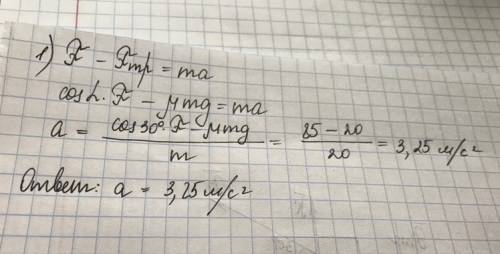 1) F - Fтр = ma
cos α · F - μmg = ma
a = (cos 30° · F - μmg) / m = (85 - 20) / 20 = 3,25 м/с²
Ответ: a = 3,25 м/с²